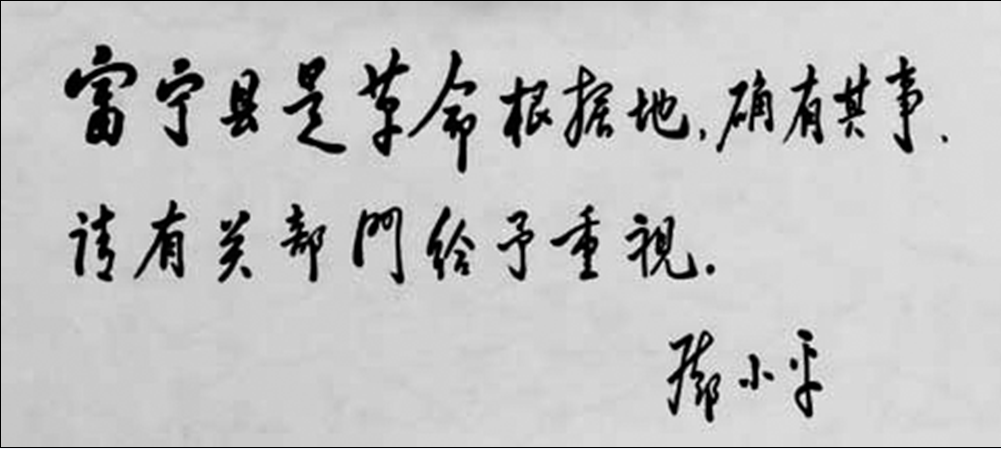 富宁县是革命根据地,确有其事、
请有关部門给予重視.
邓小平